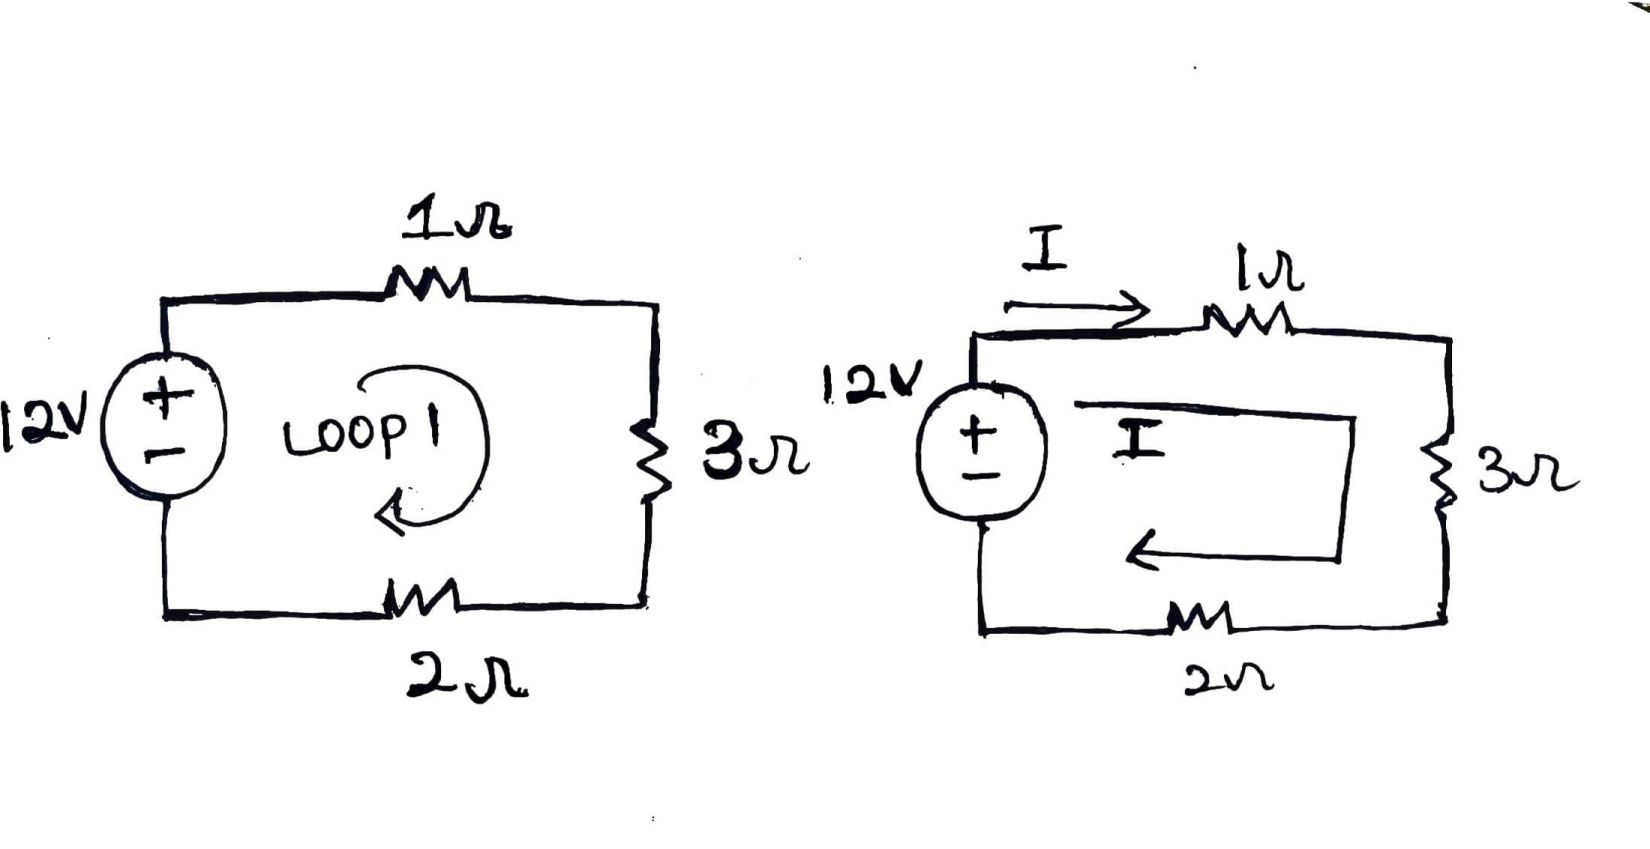 1Ω
12V
+
−
LOOP 1
3Ω
2Ω
I
1Ω
12V
+
−
I
3Ω
2Ω